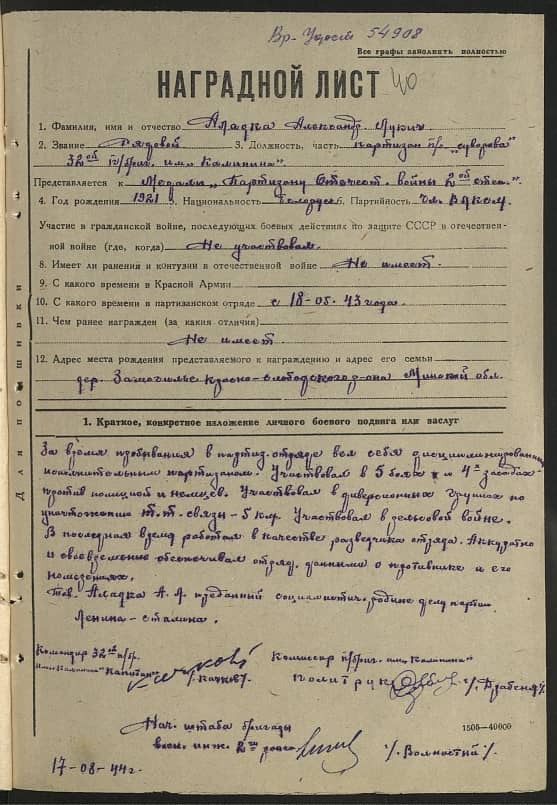 Вр. Удост 54908
Все графы заполнять полностью
НАГРАДНОЙ ЛИСТ 40
1. Фамилия, имя и отчество Аладка Александр Лукич
2. Звание Рядовой 3. Должность, часть партизан п/о "Суворова"
32ой п/бриг. им. "Калинина"
Представляется к Медали "Партизану Отечест. войны 2ой степ."
4. Год рождения 1921 г. Национальность белорус 6. Партийность чл. ВЛКСМ
Участие в гражданской войне, последующих боевых действиях по защите СССР в отечествен-
ной войне (где, когда) Не участвовал.
8. Имеет ли ранения и контузии в отечественной войне Не имеет.
9. С какого времени в Красной Армии
10. С какого времени в партизанском отряде с 18-05.43 года.
11. Чем ранее награжден (за какия отличия)
Не имеет.
12. Адрес места рождения представляемого к награждению и адрес его семьи
дер. Замогилье Красно-слободского р-она Минской обл.
Для подшивки
1. Краткое, конкретное изложение личного боевого подвига или заслуг
За время пребывания в партиз. отряде вел себя дисциплинированным
исполнительным партизаном. Участвовал в 5 боях и 4х засадах
против полиции и немцев. Участвовал в диверсионных группах по
уничтожению т.т. связи - 5 км. Участвовал в рельсовой войне.
В последная время работал в качестве разведчика отряда. Аккуратно
и своевременно обеспечивал отряд, данными о противнике и его
намерениях.
Тов. Аладка А. Л. преданный социалистич. родине делу партии
Ленина-Сталина.
Командир 32ой п/бр.
имени Калинина "Капитан"
Комиссар п/бриг. им. "Калинина"
политрук
Нач. штаба бригады
воен. инж. 2го ранга /. Волностный /.
1505-40000
17-08-44 г.